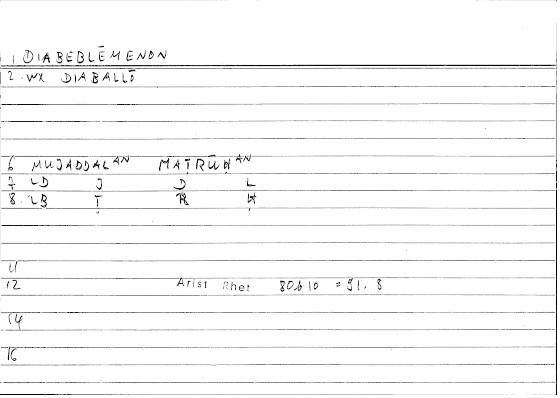 1 DIABEBLĒMENON
2. WX DIABALLŌ
6 MUJADDALAN MAṬRŪḤAN
7 LD J D L
8. LB Ṭ R Ḥ
11
12 Arist Rhet 80b10 = 91.8
14
16